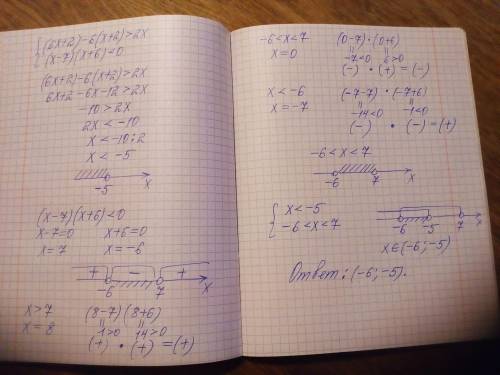 {(6x+2)-6(x+2)>2x
(x-7)(x+6)<0
(6x+2)-6(x+2)>2x
6x+2-6x-12>2x
-10>2x
2x<-10
x<-10:2
x<-5
-5 x
(x-7)(x+6)<0
x-7=0 x+6=0
x=7 x=-6
+ - +
-6 7 x
x>7 (8-7)(8+6)
x=8 1>0 14>0
(+) • (+) =(+)
-6<x<7 (0-7)•(0+6)
x=0 -7<0 6>0
(-) • (+) = (-)
x<-6 (-7-7)•(-7+6)
x=-7 -14<0 -1<0
(-) • (-)=(+)
-6<x<7
-6 7 x
{x<-5
-6<x<7
-6 -5 7 x
x∈(-6;-5)
Ответ: (-6;-5).